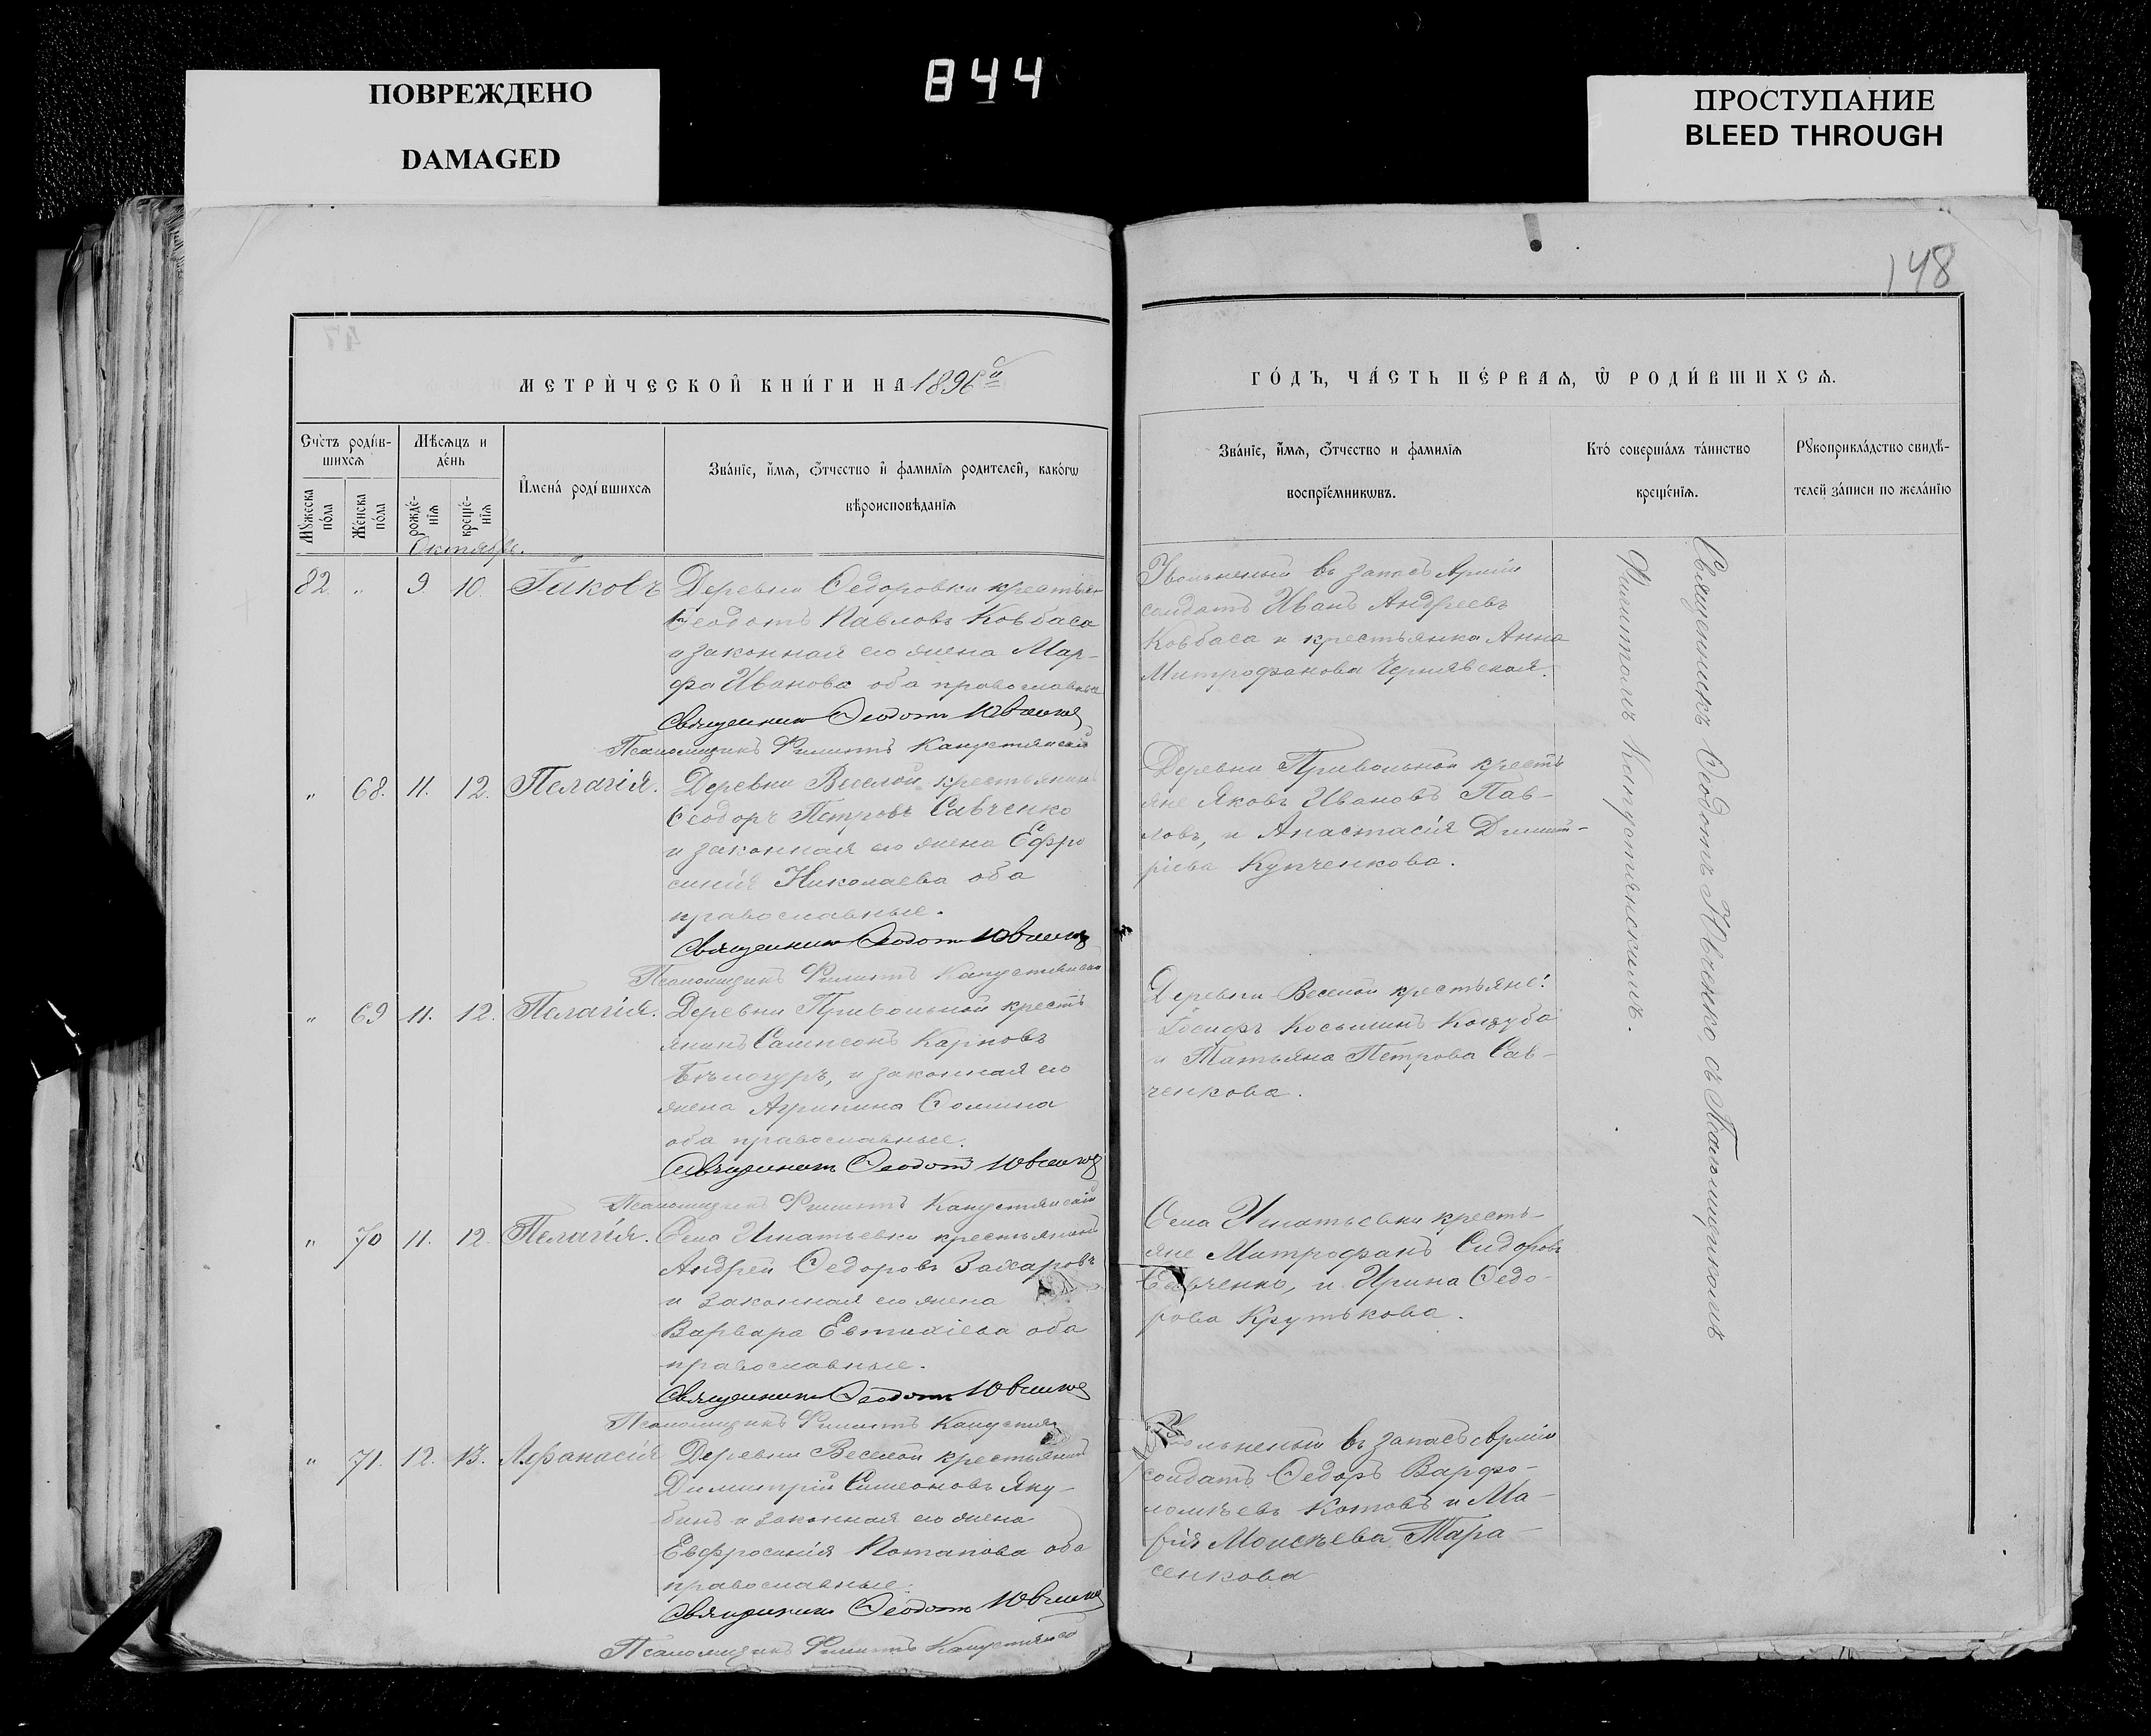 ПОВРЕЖДЕНО
DAMAGED
844
ПРОСТУПАНИЕ
BLEED THROUGH
148
МЕТРИ́ЧЕСКОЙ КНИ́ГИ НА 1896 й
ГО́ДЪ, ЧА́СТЬ ПЕ́РВАѦ, Ѡ҆ РОДИ́ВШИХСѦ.
Сче́тъ роди́в-
шихсѧ
Мѣ́сѧцъ и
де́нь
Мꙋ́жеска
по́ла
Же́нска
по́ла
рожде́-
нїѧ
креще́-
нїѧ
И҆мена́ роди́вшихсѧ
Зва́нїе, и҆́мѧ, ѻ҆́тчество и҆ фамилїѧ родителей, како́гѡ
вѣроисповѣ́данїѧ
Зва́нїе, и҆́мѧ, ѻ҆́тчество и фамилїѧ
воспрїе́мникѡвъ.
Кто́ соверша́лъ та́инство
креще́нїѧ.
Рꙋкоприкла́дство свидѣ́-
телей за́писи по жела́нїю
Октябрь.
82. " 9 10. Іаковъ
Деревни Ѳедоровки крестьян
Ѳеодотъ Павловъ Ковбаса
и законная его жена Мар-
фа Иванова оба православные
Священникъ Ѳеодотъ Ювженко
Псаломщикъ Филиппъ Капустянскій
Уволенный въ запасъ Арміи
солдатъ Иванъ Андреевъ
Ковбаса и крестьянка Анна
Митрофанова Чернявская.
" 68. 11. 12. Пелагія.
Деревни Веселой крестьянинъ
Ѳеодоръ Петровъ Савченко
и законная его жена Ефро
синія Николаева оба
православные.
Священникъ Ѳеодотъ Ювженко
Псаломщикъ Филиппъ Капустянскій
Деревни Привольной кресть
яне Яковъ Ивановъ Пав-
ловъ, и Анастасія Димит-
ріева Купченкова.
" 69 11. 12. Пелагія.
Деревни Привольной кресть
янинъ Сампсонъ Карповъ
Бѣлогуръ, и законная его
жена Агрипина Ѳомина
оба православные.
Священникъ Ѳеодотъ Ювженко
Псаломщикъ Филиппъ Капустянскій
Деревни Веселой крестьяне:
Іосифъ Косьминъ Кодзуба
и Татьяна Петрова Сав-
ченкова.
" 70 11. 12. Пелагія.
Села Игнатьевки крестьянинъ
Андрей Ѳедоровъ Захаровъ
и законная его жена
Варвара Евтихіева оба
православные.
Священникъ Ѳеодотъ Ювженко
Псаломщикъ Филиппъ Капустян
Села Игнатьевки кресть-
яне Митрофанъ Сидоровъ
Савченко, и Ирина Ѳедо-
рова Крутькова.
" 71. 12. 13. Аѳанасія
Деревни Веселой крестьянинъ
Димитрій Симеоновъ Яку-
бинъ и законная его жена
Евфросинія Потапова оба
православные.
Священникъ Ѳеодотъ Ювженко
Псаломщикъ Филиппъ Капустянскій
Уволенный въ запасъ Арміи
солдатъ Ѳедоръ Варфо-
ломѣевъ Котовъ и Ма-
рія Моисѣева Тара-
сенкова
Священникъ Ѳеодотъ Ювженко, съ Псаломщикомъ
Филиппомъ Капустянскимъ.